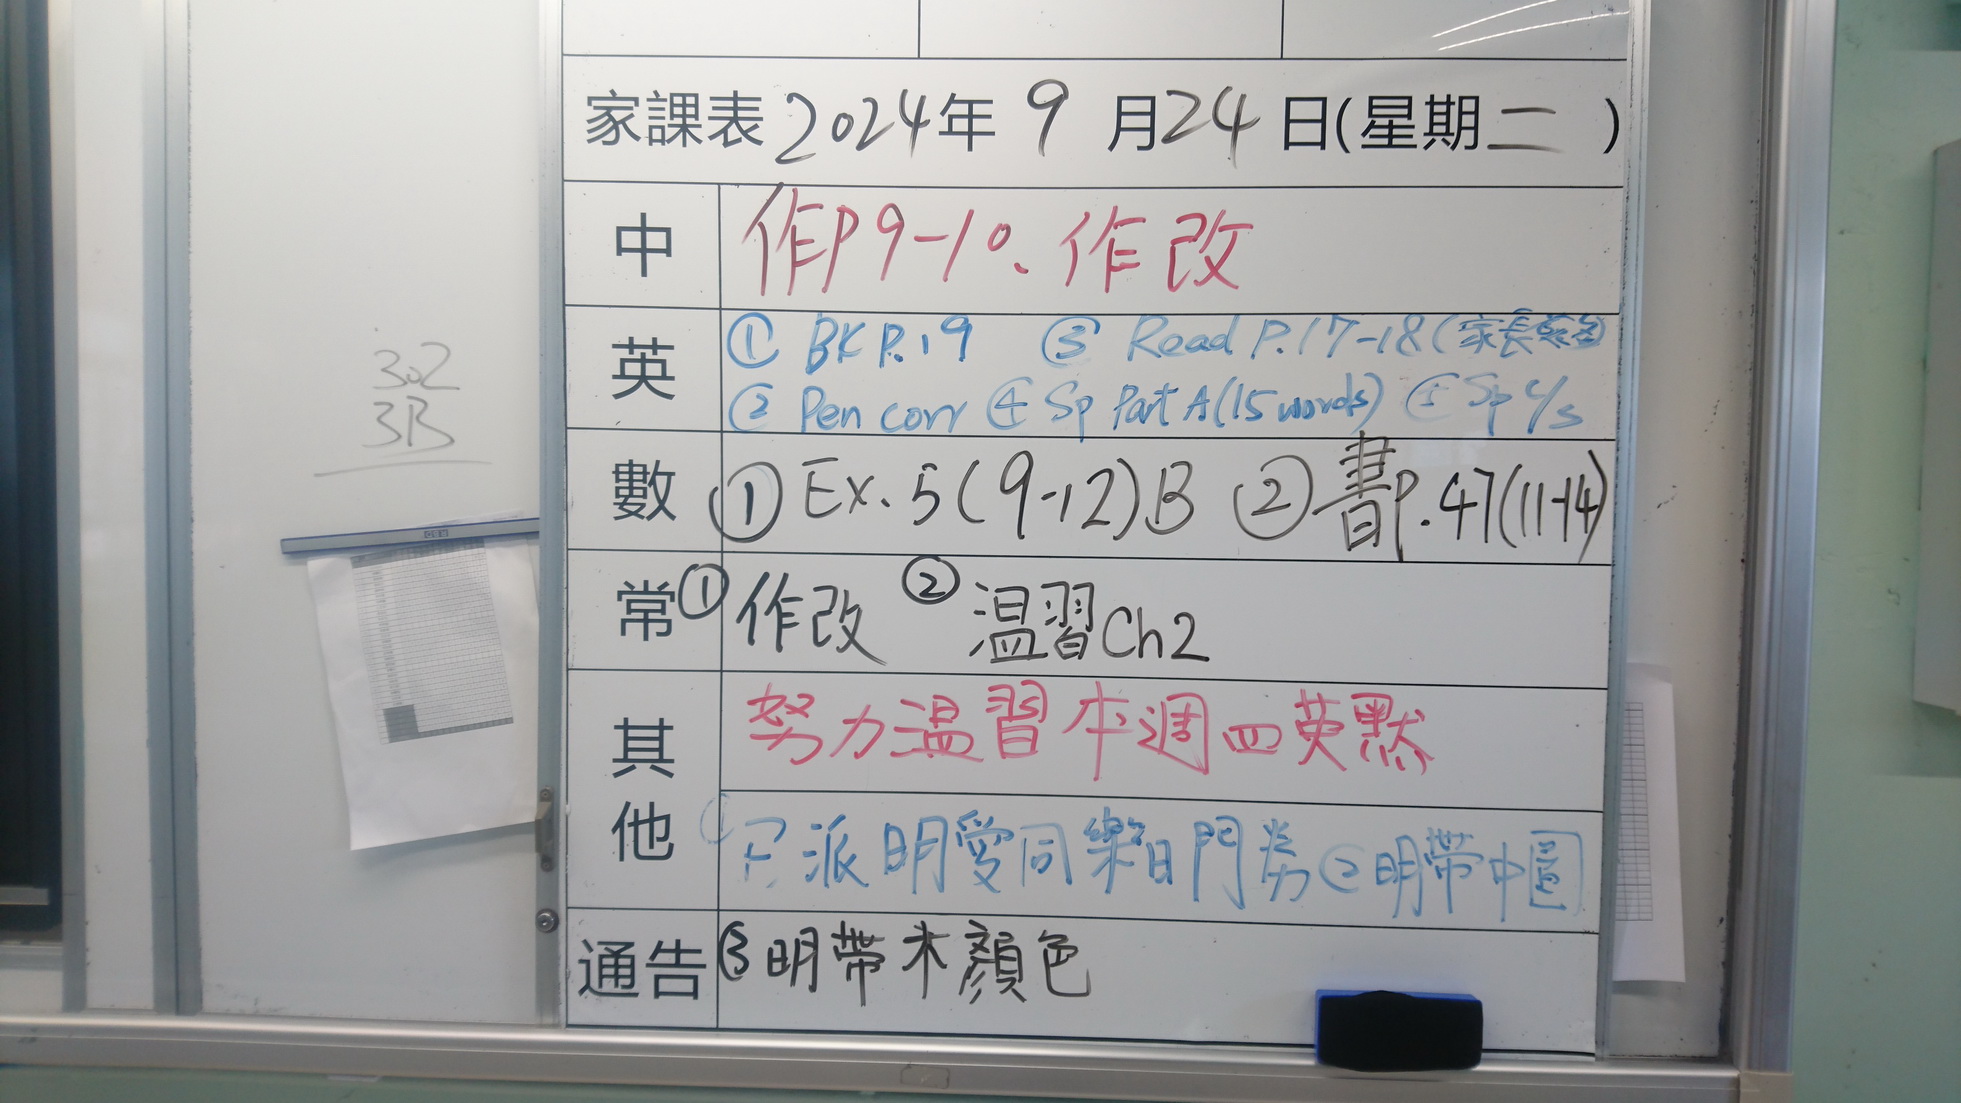 302
3B
家課表 2024年 9 月 24 日(星期二 )
中 作P9-10、作改
英 ① BK P.19 ③ Read P.17-18(家長簽名)
② Pen corr ④ Sp Part A(15 words) ⑤ Sp c/s
數 ① Ex.5(9-12)B ② 書P.47(11-14)
常 ① 作改 ② 温習Ch2
其他 努力温習本週四英默
已派明愛同樂日門券 ② 明帶中圖
通告 ③ 明帶木顏色